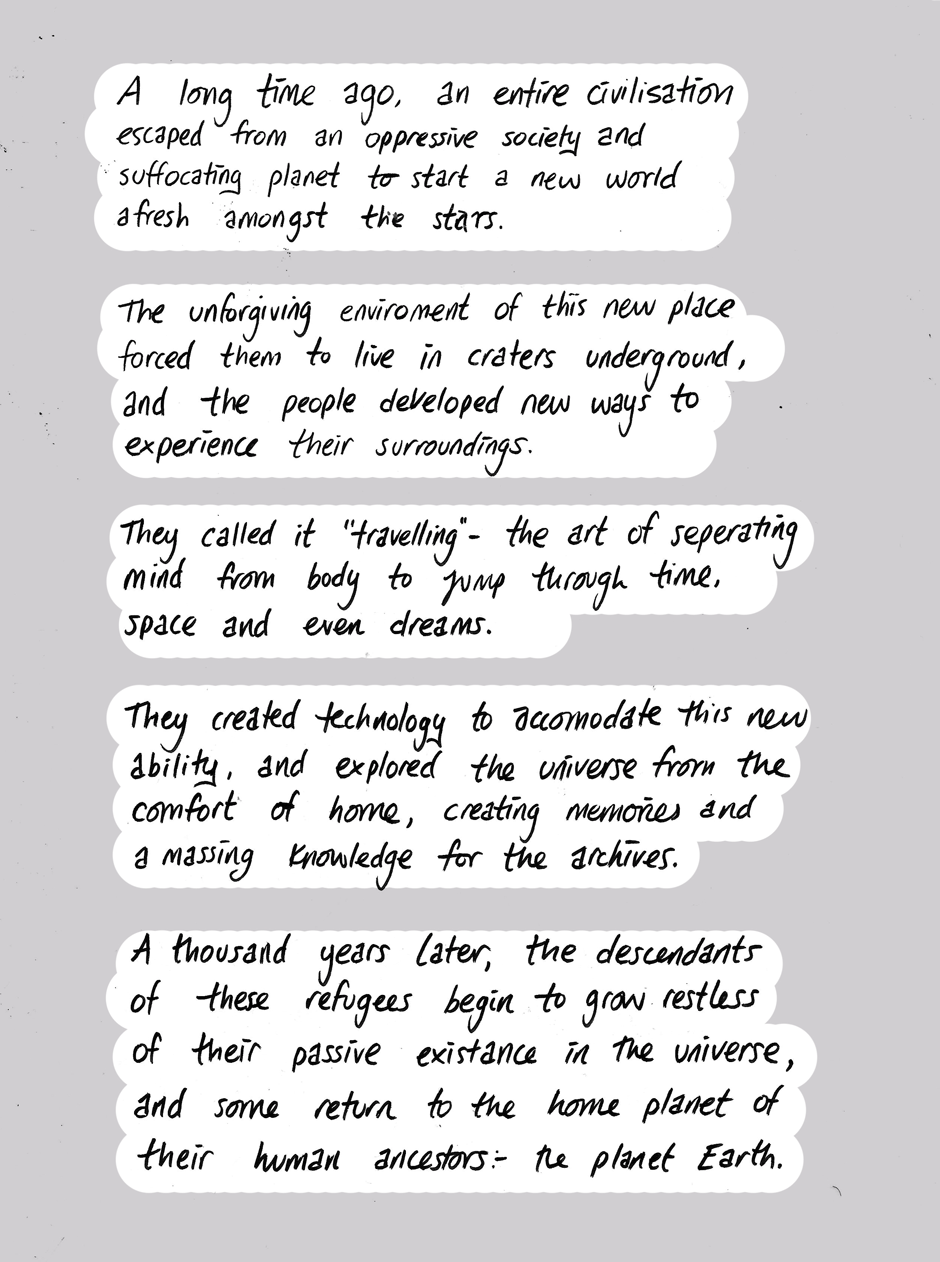 A long time ago, an entire civilisation
escaped from an oppressive society and
suffocating planet to start a new world
afresh amongst the stars.
The unforgiving enviroment of this new place
forced them to live in craters underground,
and the people developed new ways to
experience their surroundings.
They called it "travelling"- the art of seperating
mind from body to jump through time,
space and even dreams.
They created technology to accomodate this new
ability, and explored the universe from the
comfort of home, creating memories and
a massing knowledge for the archives.
A thousand years later, the descendants
of these refugees begin to grow restless
of their passive existance in the universe,
and some return to the home planet of
their human ancestors:- the planet Earth.